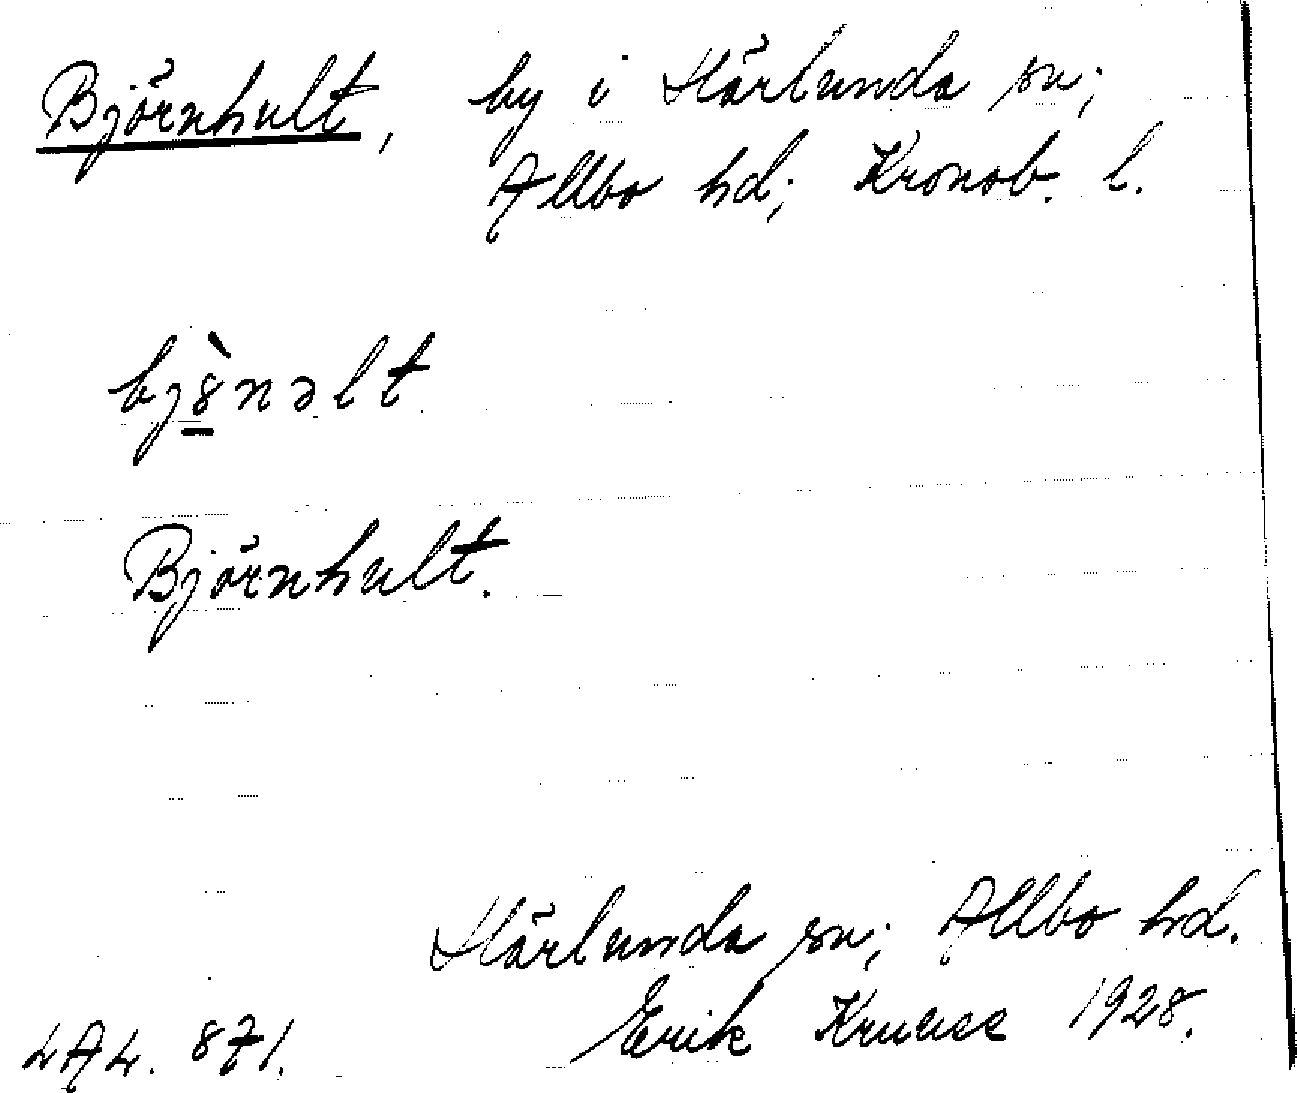 Björnhult, by i Härlunda sn;
Allbo hd; Kronob. l.
bjö̀nəlt
Björnhult.
Härlunda sn; Allbo hd.
Erik Kruuse 1928.
LAL. 871.